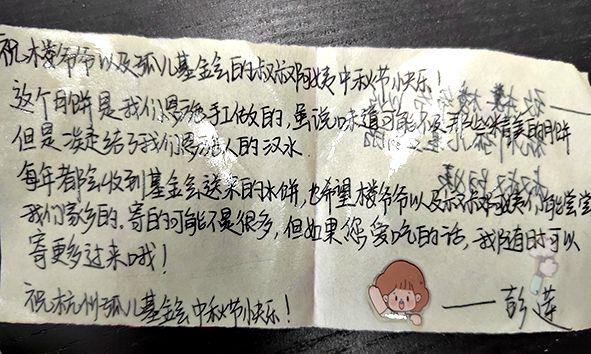 祝楼爷爷以及孤儿基金会的叔叔阿姨中秋节快乐！
这个月饼是我们恩施手工做的，虽说味道可能不及那些精美的月饼
但是凝结了我们恩施人的汉水。
每年都会收到基金会送来的冰饼，也希望楼爷爷以及叔叔阿姨们能尝尝
我们家乡的。寄的可能不是很多，但如果您爱吃的话，我随时可以
寄更多过来哦！
祝杭州孤儿基金会中秋节快乐！
——彭莲